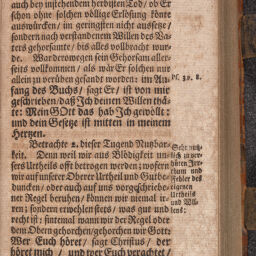 auch bey instehendem herbsten Tod/ ob Er
schon ohne solchen völlige Erlösung könte
auswürcken/ im geringsten nicht aussetze/
sondern nach verstandenem Willen des Va-
ters gehorsamte/ bis alles vollbracht wur-
de. Warderowegen sein Gehorsam aller-
seits vollkommen/ als wär Er solchen nur
allein zu verüben gesandt worden: im An-
fang des Buchs/ sagt Er/ ist von mir
geschrieben/ daß Ich deinen Willen thä-
te: Mein GOtt das hab Ich gewollt:
und dein Gesetze ist mitten in meinem
Hertzen.
Ps. 39. 8.
Betrachte 2. dieser Tugend Nutzbar-
keit. Denn weil wir aus Blödigkeit un-
sers Urtheils offt betrogen werden; wofern
wir auf unsere Oberer Urtheil und Gutbe-
duncken/ oder auch auf uns vorgeschriebe-
ner Regel beruhen/ können wir niemal ir-
ren; sondern erwehlen stets/ was gut und
recht ist: sintemal wann wir der Regel oder
dem Obern gehorchen/ gehorchen wir Gott:
Wer Euch höret/ sagt Christus/ der
höret mich/ und wer Euch verachtet/
und
Fehler des
eigenen
Urtheils
und Wil-
lens: